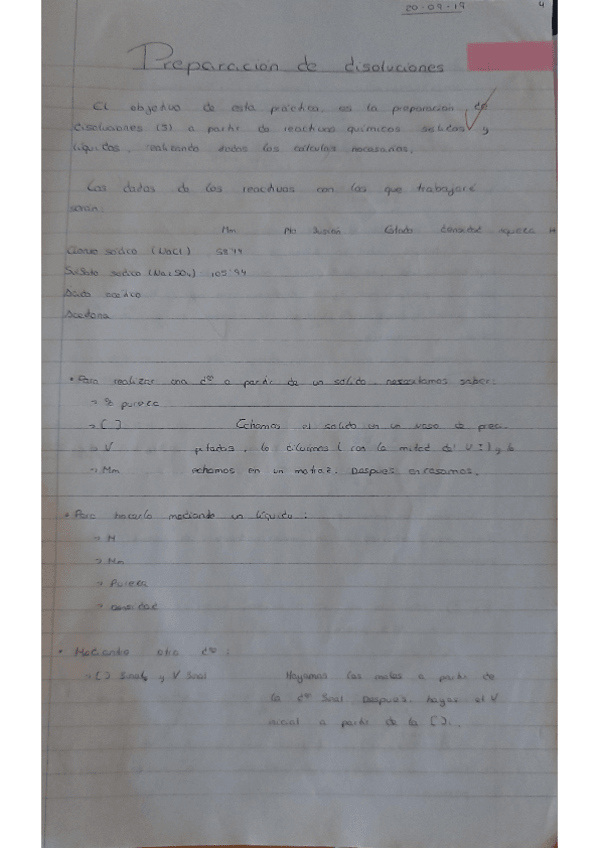 20-09-19
4
Preparación de disoluciones
El objetivo de esta práctica es la preparación de
disoluciones (3) a partir de reactivos químicos solidos y
líquidos, realizando todos los cálculos necesarios.
Los datos de los reactivos con los que trabajaré
serán:
Mm Pto fusión Estado densidad riqueza
Cloruro sódico (NaCl) 58'44
Sulfato sódico (Na2SO4) 105'94
Ácido acético
Acetona
• Para realizar una dºⁿ a partir de un solido, necesitamos saber:
→ % pureza
→ [ ] Echamos el solido en un vaso de preci-
→ V pitados, lo diluimos ( con la mitad del V ) y lo
→ Mm echamos en un matraz. Despues enrasamos.
• Para hacerlo mediante un líquido:
→ M
→ Mm
→ Pureza
→ densidad
• Mediante otra dºⁿ:
→ [ ] final y V final Hayamos los moles a partir de
la dºⁿ final. Despues, hayar el V
inicial a partir de la [ ].